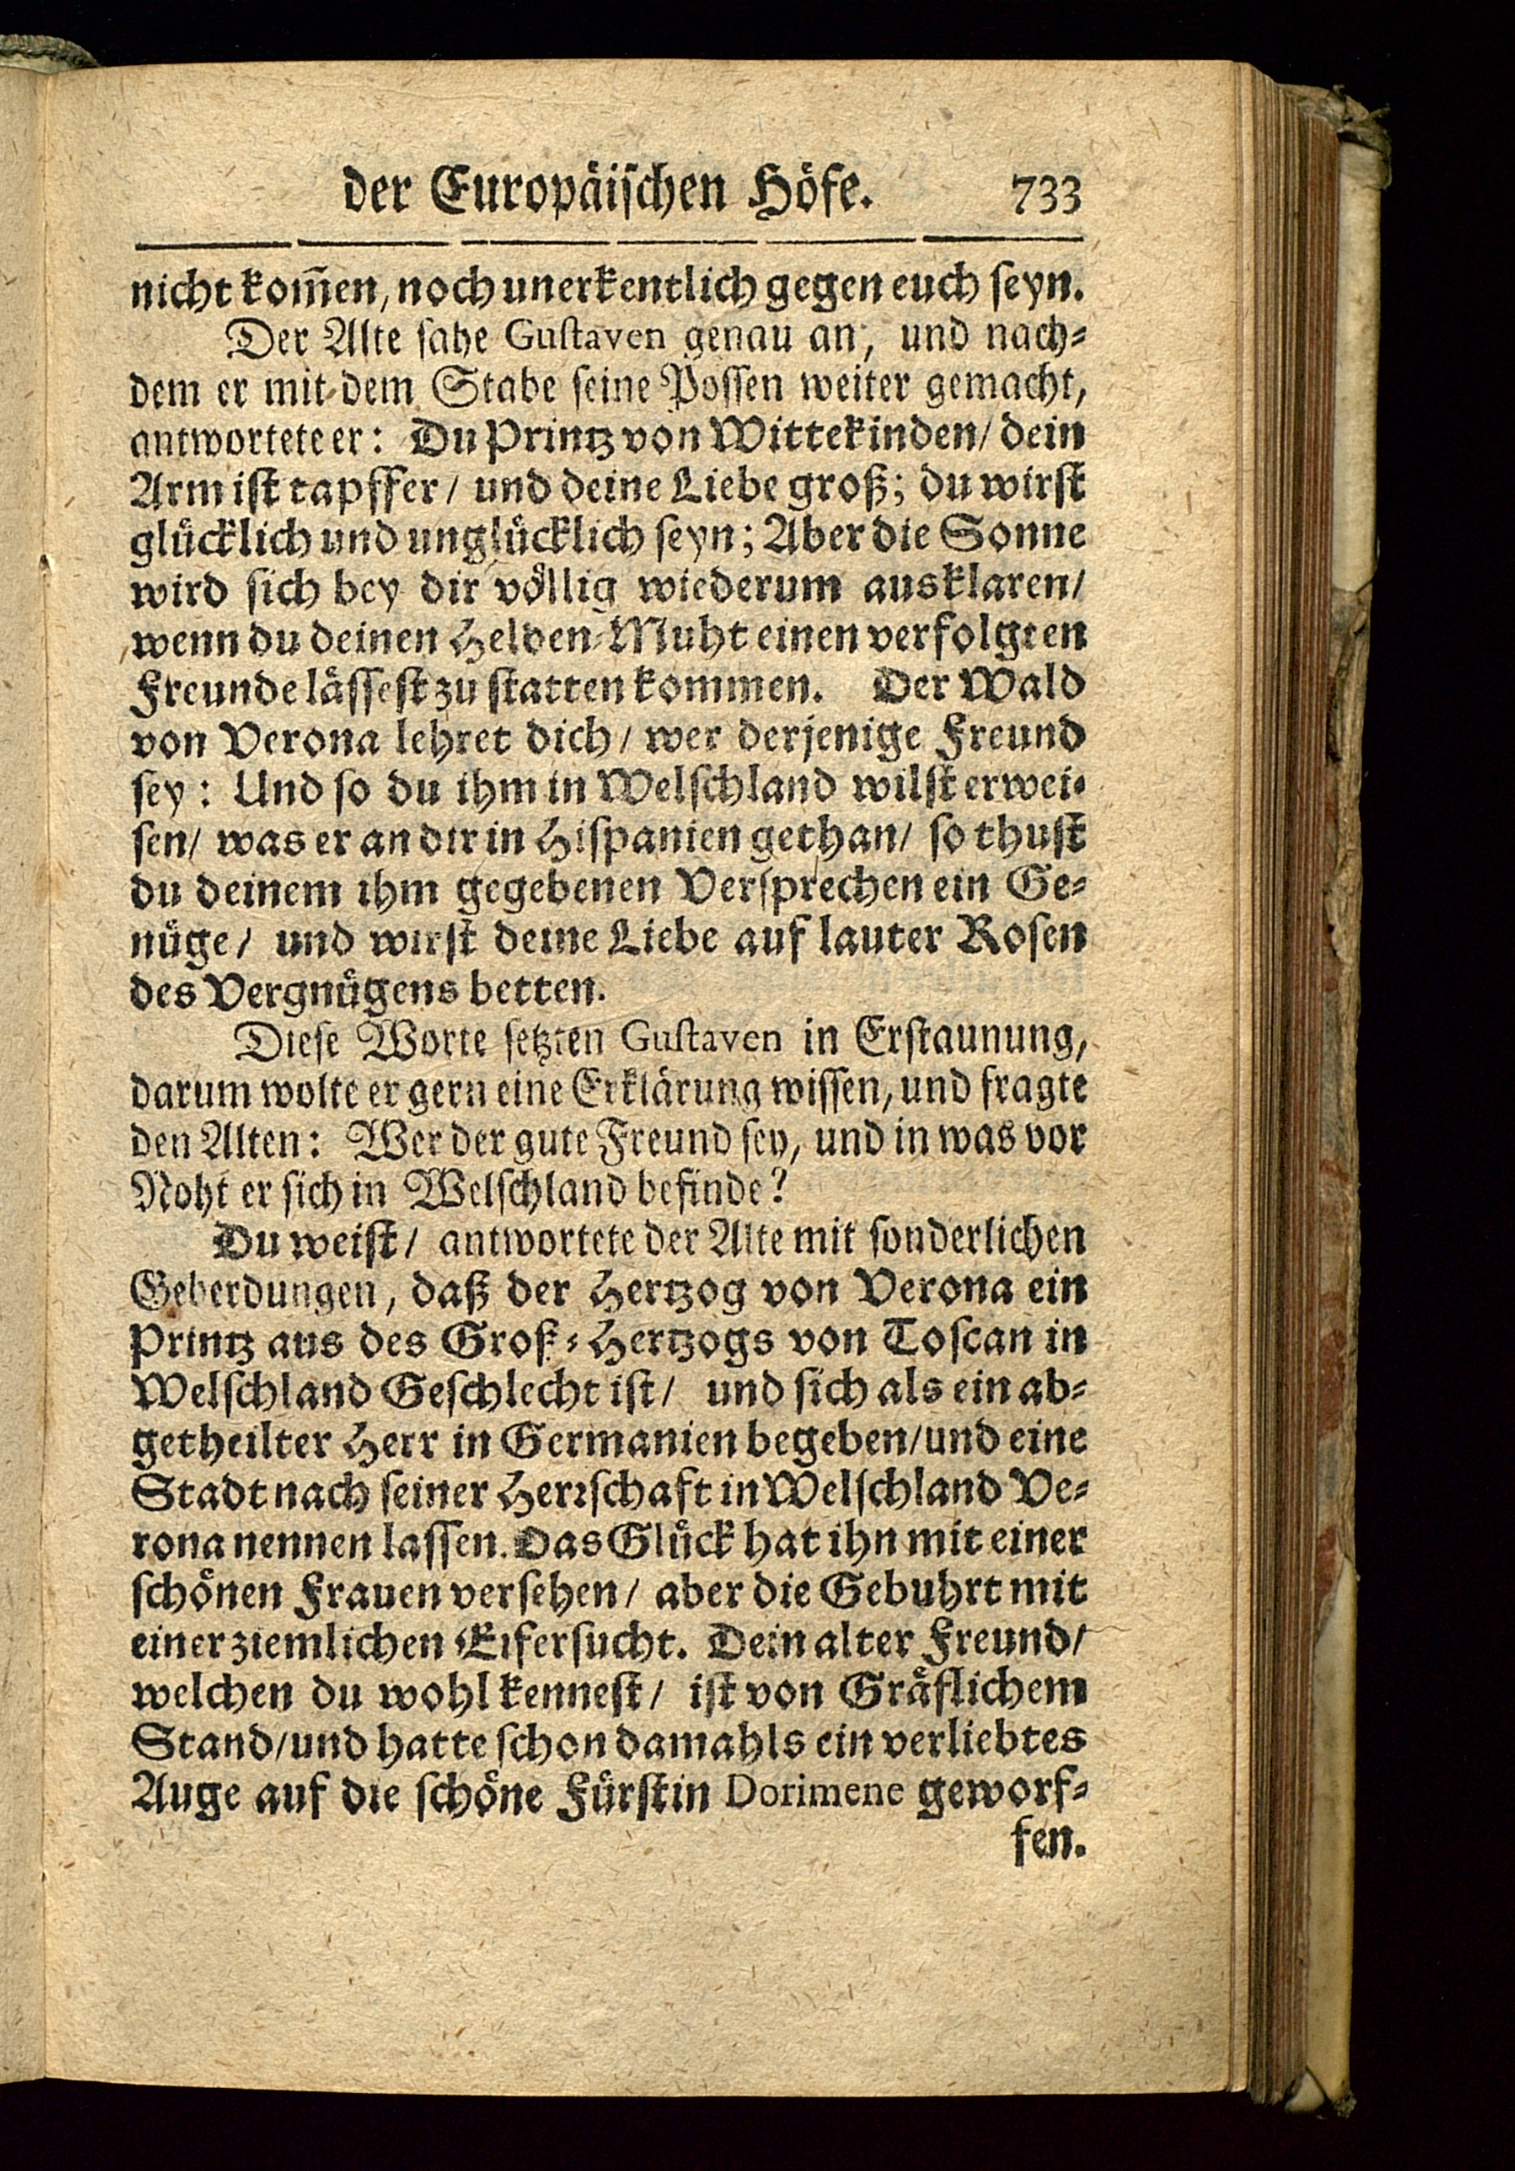 der Europäischen Höfe. 733
nicht kom̃en, noch unerkentlich gegen euch seyn.
Der Alte sahe Gustaven genau an, und nach-
dem er mit dem Stabe seine Possen weiter gemacht,
antwortete er: Du Printz von Wittekinden/ dein
Arm ist tapffer/ und deine Liebe groß; du wirst
glücklich und unglücklich seyn; Aber die Sonne
wird sich bey dir völlig wiederum ausklaren/
wenn du deinen Helden-Muht einen verfolgten
Freunde lässest zu statten kommen. Der Wald
von Verona lehret dich/ wer derjenige Freund
sey: Und so du ihm in Welschland wilst erwei-
sen/ was er an dir in Hispanien gethan/ so thust
du deinem ihm gegebenen Versprechen ein Ge-
nüge/ und wirst deine Liebe auf lauter Rosen
des Vergnügens betten.
Diese Worte setzten Gustaven in Erstaunung,
darum wolte er gern eine Erklärung wissen, und fragte
den Alten: Wer der gute Freund sey, und in was vor
Noht er sich in Welschland befinde?
Du weist/ antwortete der Alte mit sonderlichen
Geberdungen, daß der Hertzog von Verona ein
Printz aus des Groß-Hertzogs von Toscan in
Welschland Geschlecht ist/ und sich als ein ab-
getheilter Herr in Germanien begeben/ und eine
Stadt nach seiner Herrschaft in Welschland Ve-
rona nennen lassen. Das Glück hat ihn mit einer
schönen Frauen versehen/ aber die Gebuhrt mit
einer ziemlichen Eifersucht. Dein alter Freund/
welchen du wohl kennest/ ist von Gräflichem
Stand/ und hatte schon damahls ein verliebtes
Auge auf die schöne Fürstin Dorimene geworf-
fen.